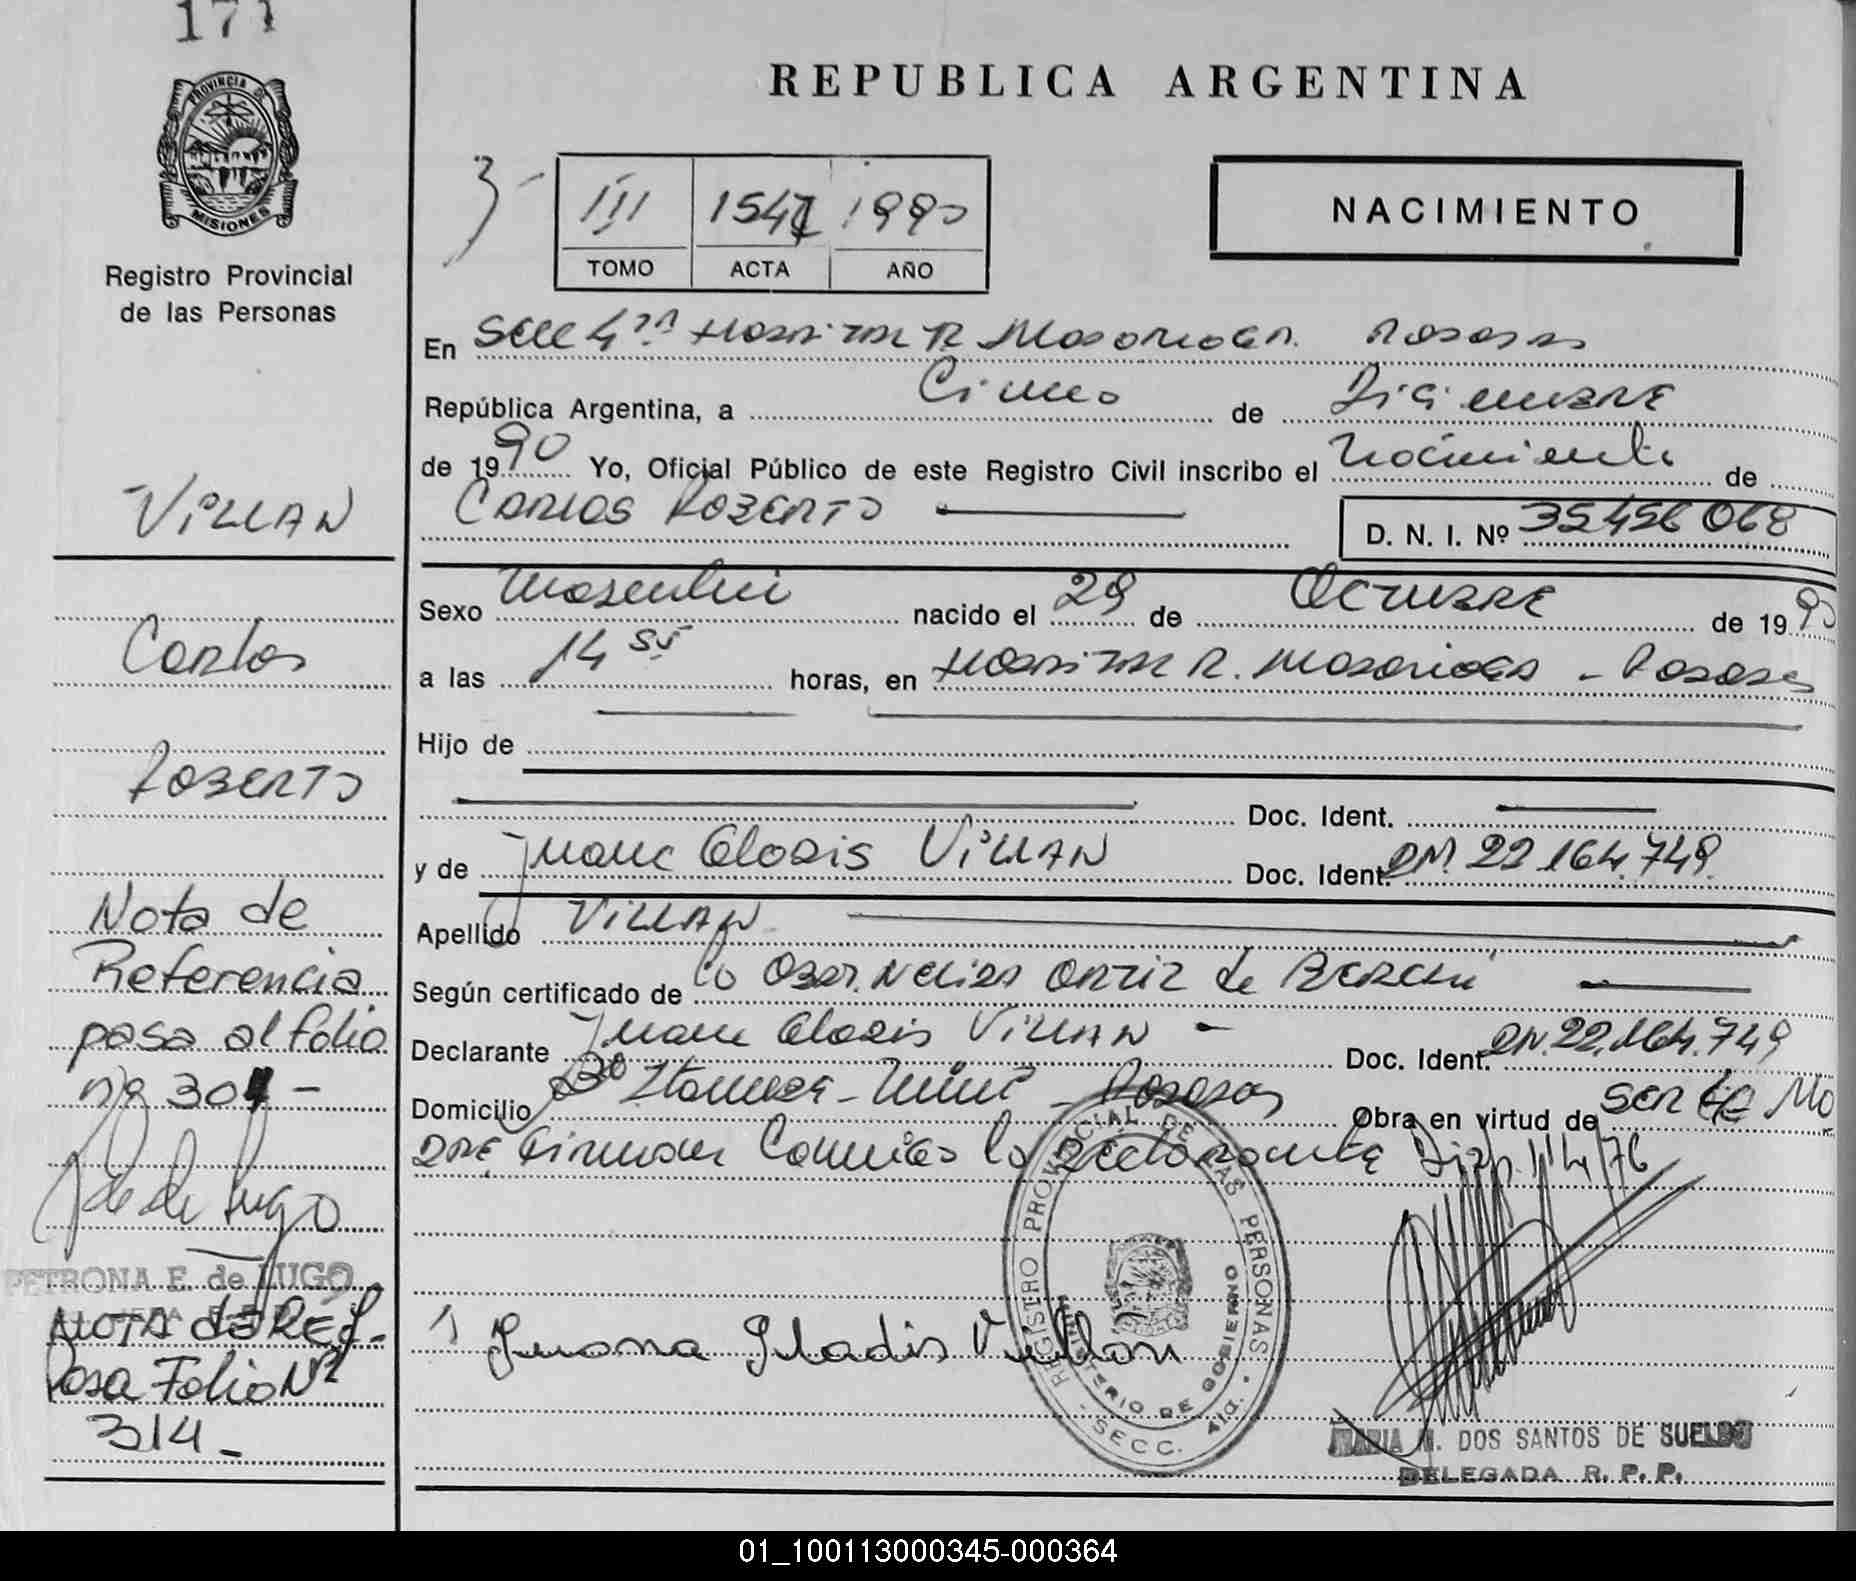 171
PROVINCIA DE
MISIONES
Registro Provincial
de las Personas
VILLAN
Carlos
Roberto
Nota de
Referencia
pasa al folio
nº 304 -
P. de Lugo
PETRONA E. de LUGO
NOTA de Ref-
Pasa Folio Nº
314 -
REPUBLICA ARGENTINA
3 -
III 1547 1990
TOMO ACTA AÑO
NACIMIENTO
En Secc 4ª Hospital R. Madariaga. Posadas
República Argentina, a Cinco de Diciembre
de 1990 Yo, Oficial Público de este Registro Civil inscribo el Nacimiento de
Carlos Roberto D. N. I. Nº 35456068
Sexo Masculino nacido el 29 de Octubre de 1990
a las 14 horas, en Hospital R. Madariaga - Posadas
Hijo de
Doc. Ident.
y de Juana Gladis Villan Doc. Ident. DNI 22.164.749
Apellido Villan
Según certificado de la Obst. Nelida Ortiz de
Declarante Juana Gladis Villan - Doc. Ident. DNI. 22.164.749
Domicilio - Posadas Obra en virtud de ser la Ma
dre Firman Conmigo la Declarante Disp. 114/76
1) Juana Gladis Villan
REGISTRO PROVINCIAL DE LAS PERSONAS
MINISTERIO DE GOBIERNO
- SECC. 4ta. -
MARIA N. DOS SANTOS DE SUELDO
DELEGADA R. P. P.
01_100113000345-000364